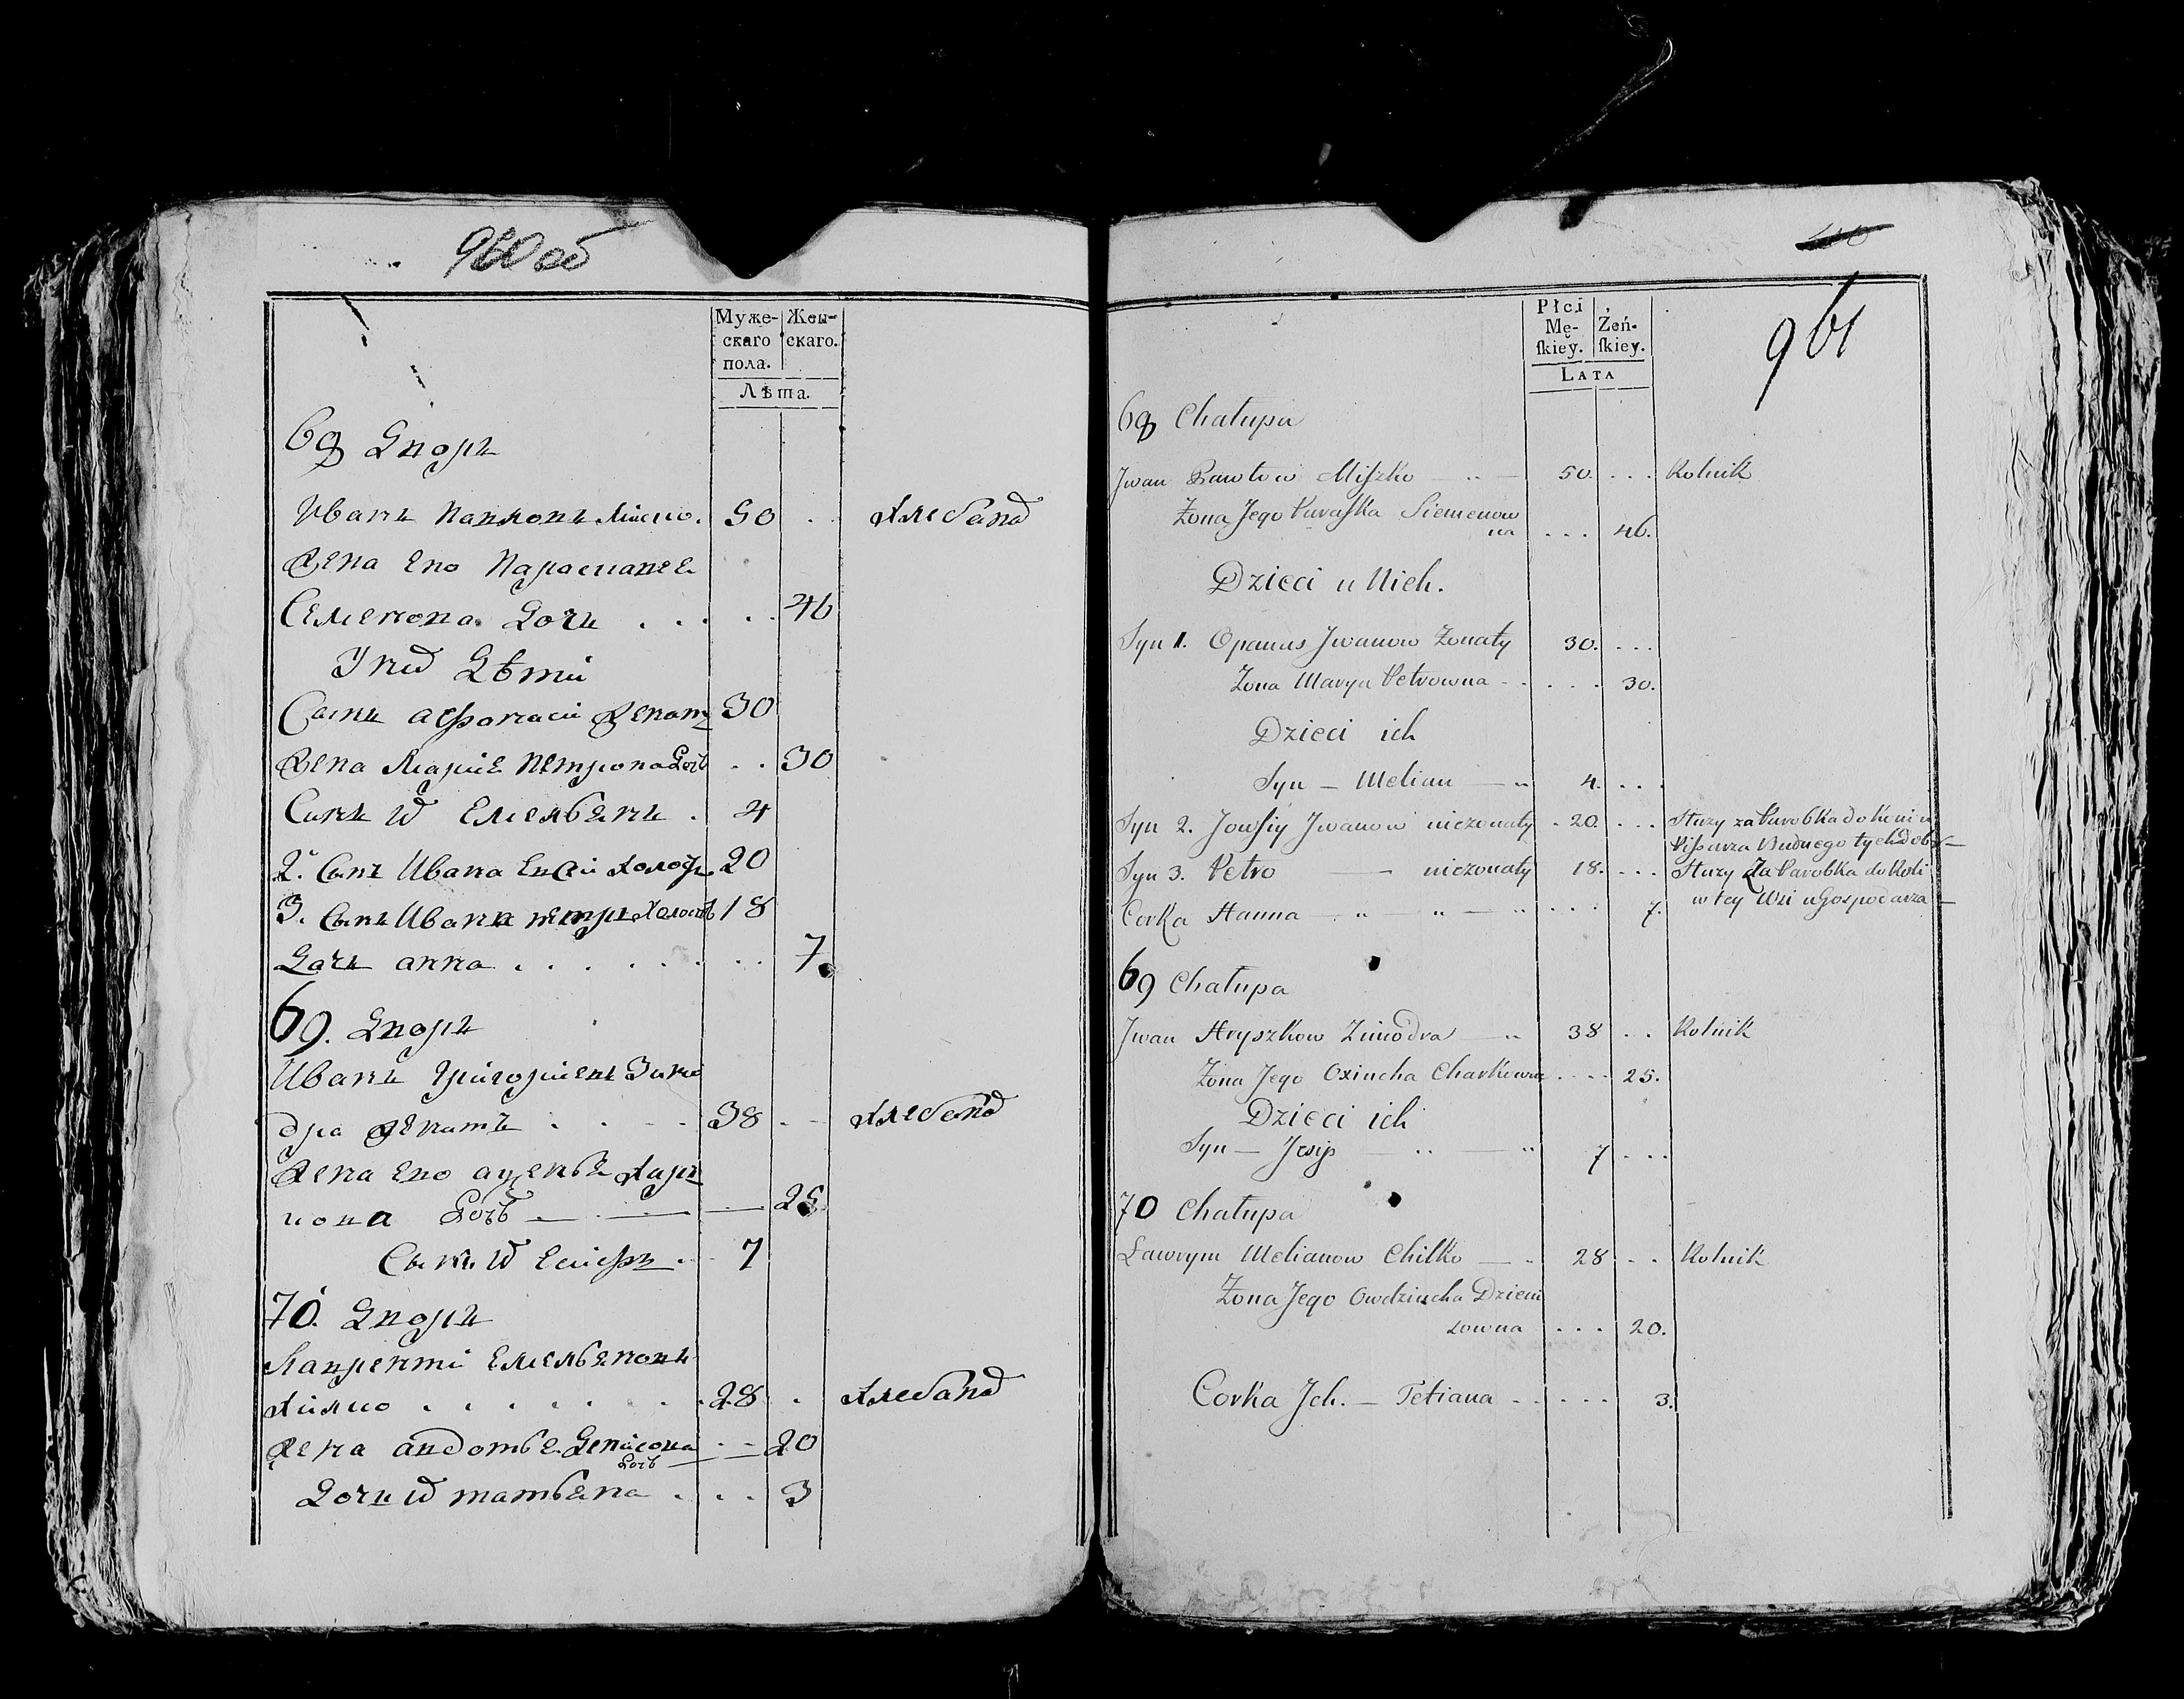 960 об
Муже-
скаго
пола.
Жен-
скаго.
Лѣта.
68 Дворъ
Иванъ Павловъ Мишко. 50 . . Хлебапо
Жена Его Параскавея
Семенова Дочь . . . . . 46
У нихъ Дѣти
Сынъ Афонасіи Женатъ 30
Жена Марие Петрова Дочь . . 30
Сынъ Их Емельянъ . 4
2. Сынъ Ивана Евсіи Холостъ 20
3. Сынъ Ивана Петръ Холостъ 18
Дочь анна . . . . . . . . . 7.
69. Дворъ
Иванъ Григориевъ Зимо
дра Женатъ . . . . 38 . - Хлебапо
Жена Его Харь
кова Дочь 25.
Сынъ Их Есифъ . 7
70. Дворъ
Лаврентіи Емельяновъ
Хилко . . . . . . . 28 . Хлебапо
Жена авдотья Денисова
Дочь 20
Дочь Их татьяна . . . . 3
961
Płci
Mę-
ſkiey.
Żeń-
ſkiey.
LATA
68 Chałupa
Jwan Pawłow Miſzko 50. . . . Rolnik
Żona Jego Paraſka Siemenow
na . . . 46.
Dzieci u Nich.
Syn 1. Opanas Jwanow Żonaty 30. . . .
Żona Marya Petrowna - . . . . 30.
Dzieci ich
Syn — Melian 4. . . .
Syn 2. Jowſiy Jwanow nieżonaty . 20. . . . Służy za Parobka do
Piſarza tych dobr —
Syn 3. Petro — nieżonaty 18. . . . Służy Za Parobka do Roli
w tey Wsi u Gospodarza —
Corka Hanna . . . 7.
69 Chałupa
Jwan Hryszkow Zimodra 38 . . Rolnik
Żona Jego Oxiucha Charkowna . . . . 25.
Dzieci ich
Syn — Josip 7 . . .
70 Chałupa
Ławryn Melianow Chilko 28 . . Rolnik
Żona Jego Owdziucha Dzieni
sowna . . . 20.
Corka Jch. — Tetiana . . . . . 3.